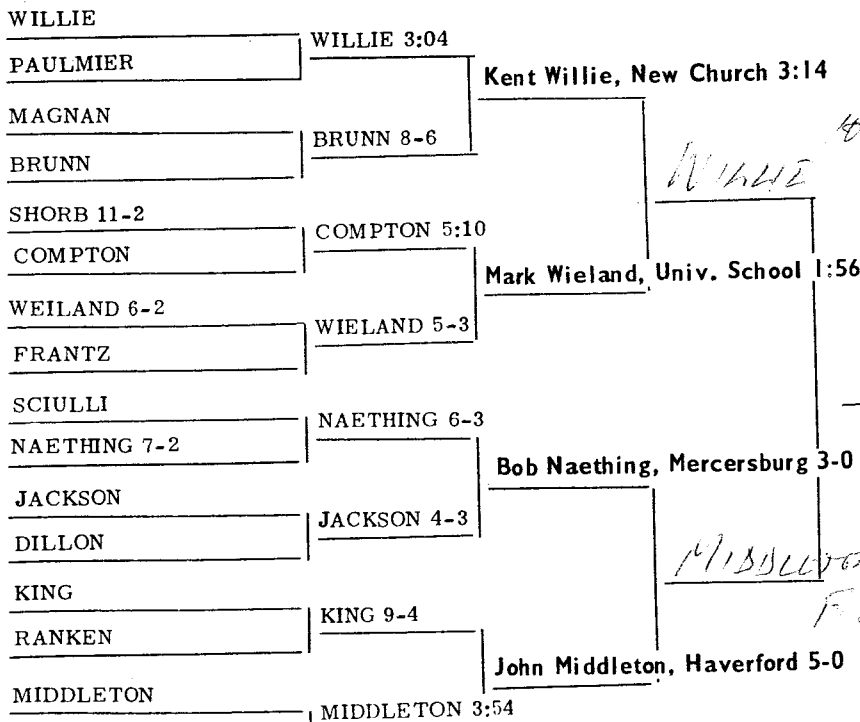 WILLIE
PAULMIER
MAGNAN
BRUNN
SHORB 11-2
COMPTON
WEILAND 6-2
FRANTZ
SCIULLI
NAETHING 7-2
JACKSON
DILLON
KING
RANKEN
MIDDLETON
WILLIE 3:04
BRUNN 8-6
COMPTON 5:10
WIELAND 5-3
NAETHING 6-3
JACKSON 4-3
KING 9-4
MIDDLETON 3:54
Kent Willie, New Church 3:14
Mark Wieland, Univ. School 1:56
Bob Naething, Mercersburg 3-0
John Middleton, Haverford 5-0
WILLIE